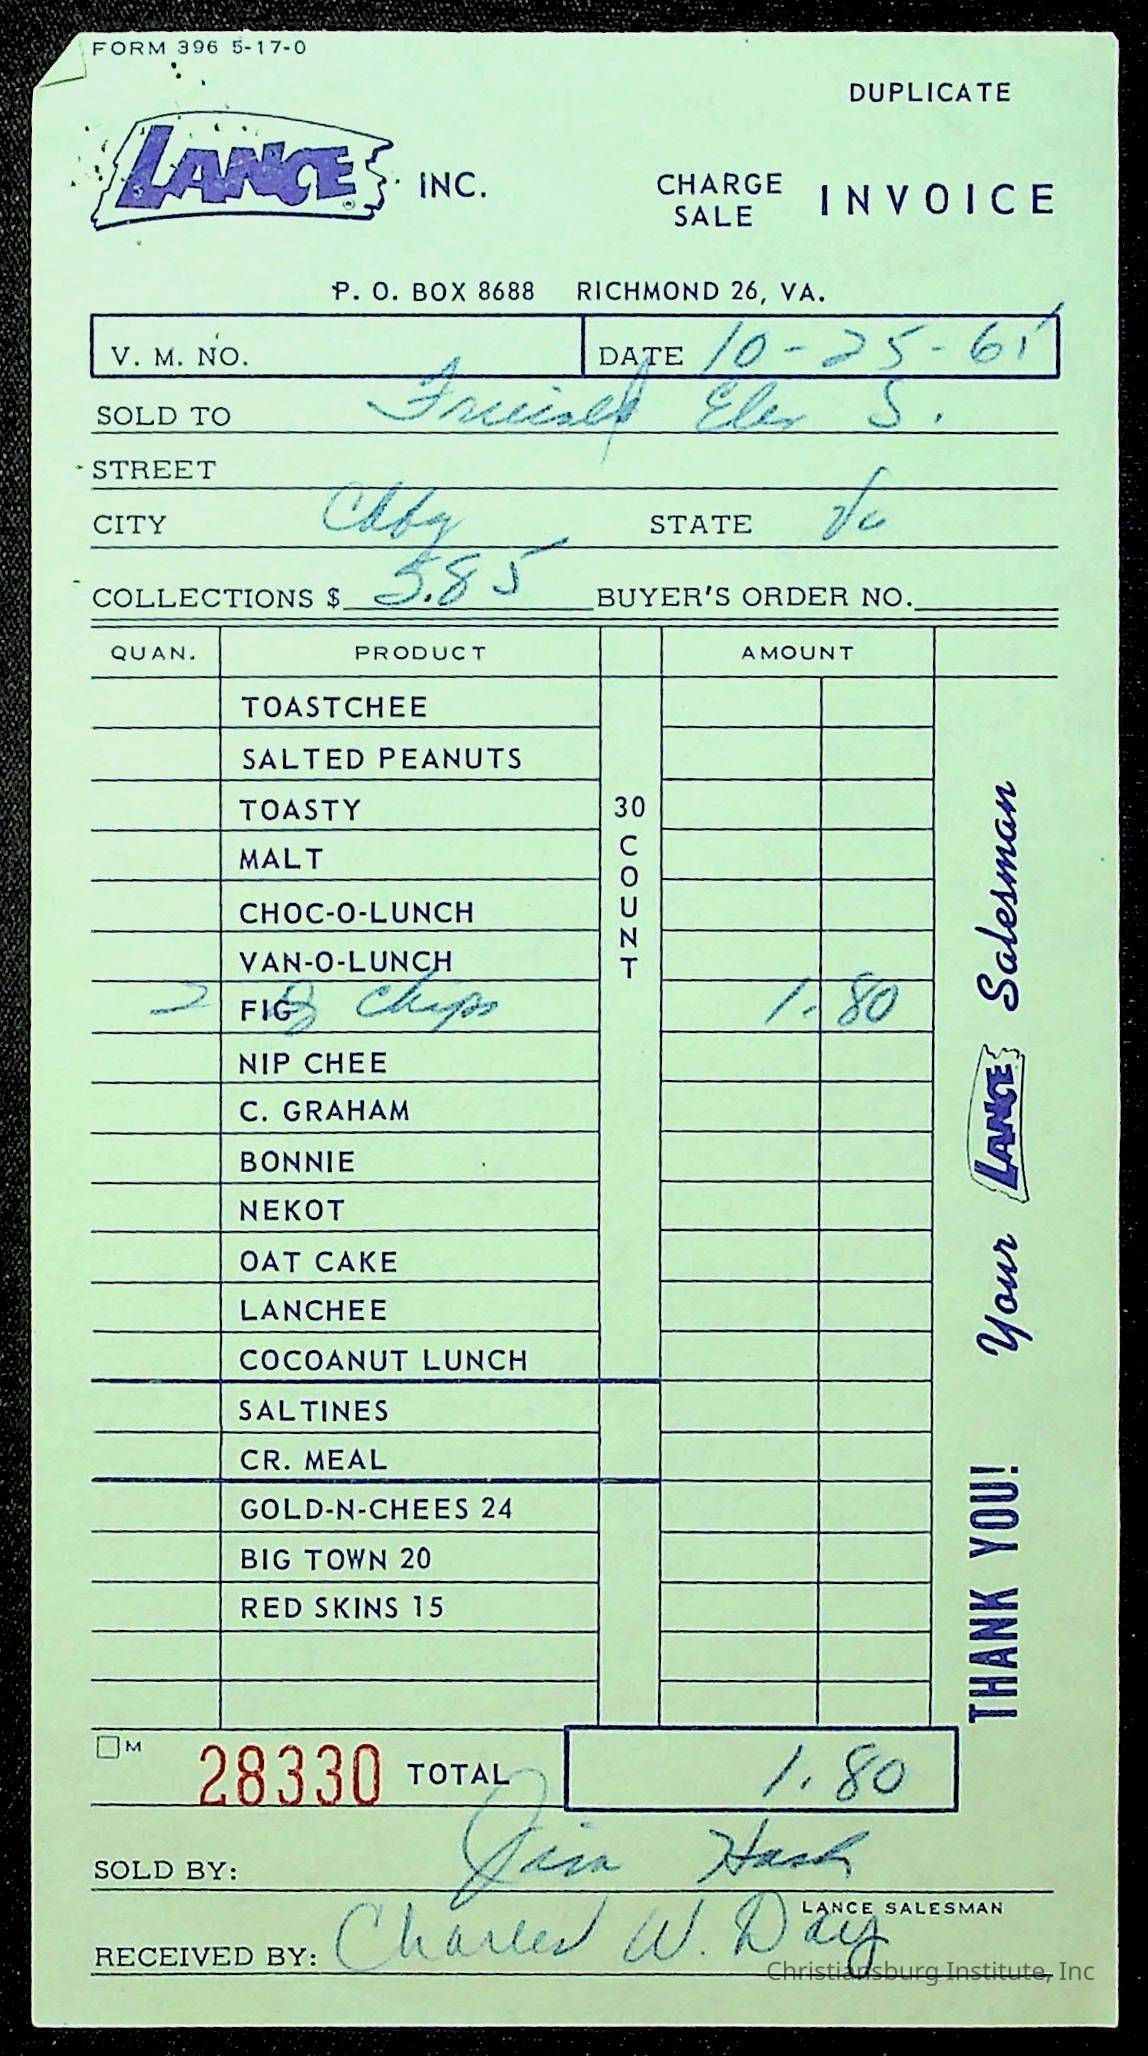 FORM 396 5-17-0
DUPLICATE
LANCE ® INC.
CHARGE SALE INVOICE
P. O. BOX 8688 RICHMOND 26, VA.
V. M. NO. DATE 10-25-61
SOLD TO S.
STREET
CITY Cbbg STATE Va
COLLECTIONS $ 5.85 BUYER'S ORDER NO.
QUAN. PRODUCT AMOUNT
TOASTCHEE
SALTED PEANUTS
TOASTY
MALT
CHOC-O-LUNCH
VAN-O-LUNCH
2 FIG Chips 1.80
NIP CHEE
C. GRAHAM
BONNIE
NEKOT
OAT CAKE
LANCHEE
COCOANUT LUNCH
SALTINES
CR. MEAL
GOLD-N-CHEES 24
BIG TOWN 20
RED SKINS 15
30 COUNT
Your LANCE Salesman
THANK YOU!
M 28330 TOTAL 1.80
SOLD BY: Jim Hash
LANCE SALESMAN
RECEIVED BY: Charles W. Day
Christiansburg Institute, Inc